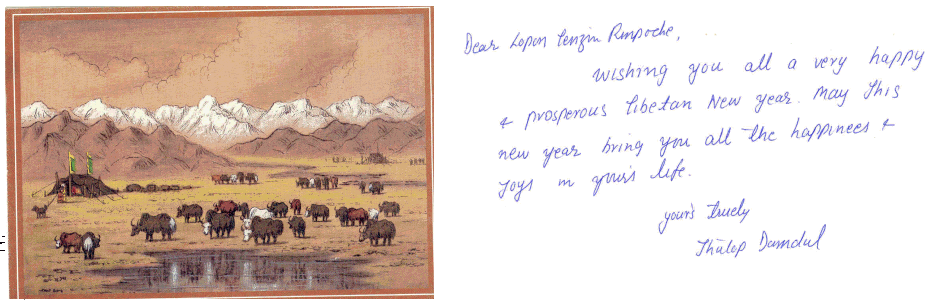 Dear Lopon Tenzin Rinpoche,
Wishing you all a very happy
& prosperous Tibetan New Year. May this
new year bring you all the happinees &
Joys in your's life.
your's truely
Thülop Damdul